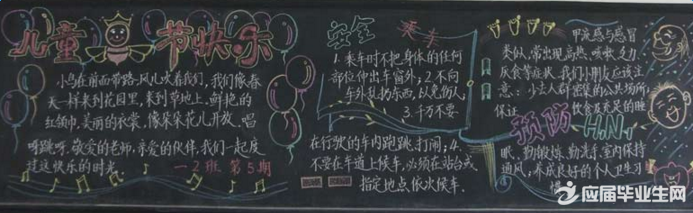 儿童节快乐
小鸟在前面带路,风儿吹着我们,我们像春
天一样来到花园里,来到草地上,鲜艳的
红领巾,美丽的衣裳,像朵朵花儿开放。唱
呀跳呀,敬爱的老师,亲爱的伙伴,我们一起度
过这快乐的时光。
一2班 第5期
安全乘车
1.乘车时不把身体的任何
部位伸出车窗外;2.不向
车外乱扔东西,以免伤人;
3.千万不要
在行驶的车内跑跳、打闹;4.
不要在车道上候车,必须在站台或
指定地点依次候车.
甲流感与感冒
类似,常出现高热、咳嗽、乏力、
厌食等症状.我们小朋友应该注
意:少去人群密集的公共场所;
保证饮食及充足的睡
预防H1N1
眠、勤锻炼、勤洗手,室内保持
通风,养成良好的个人卫生习
惯.
应届毕业生网